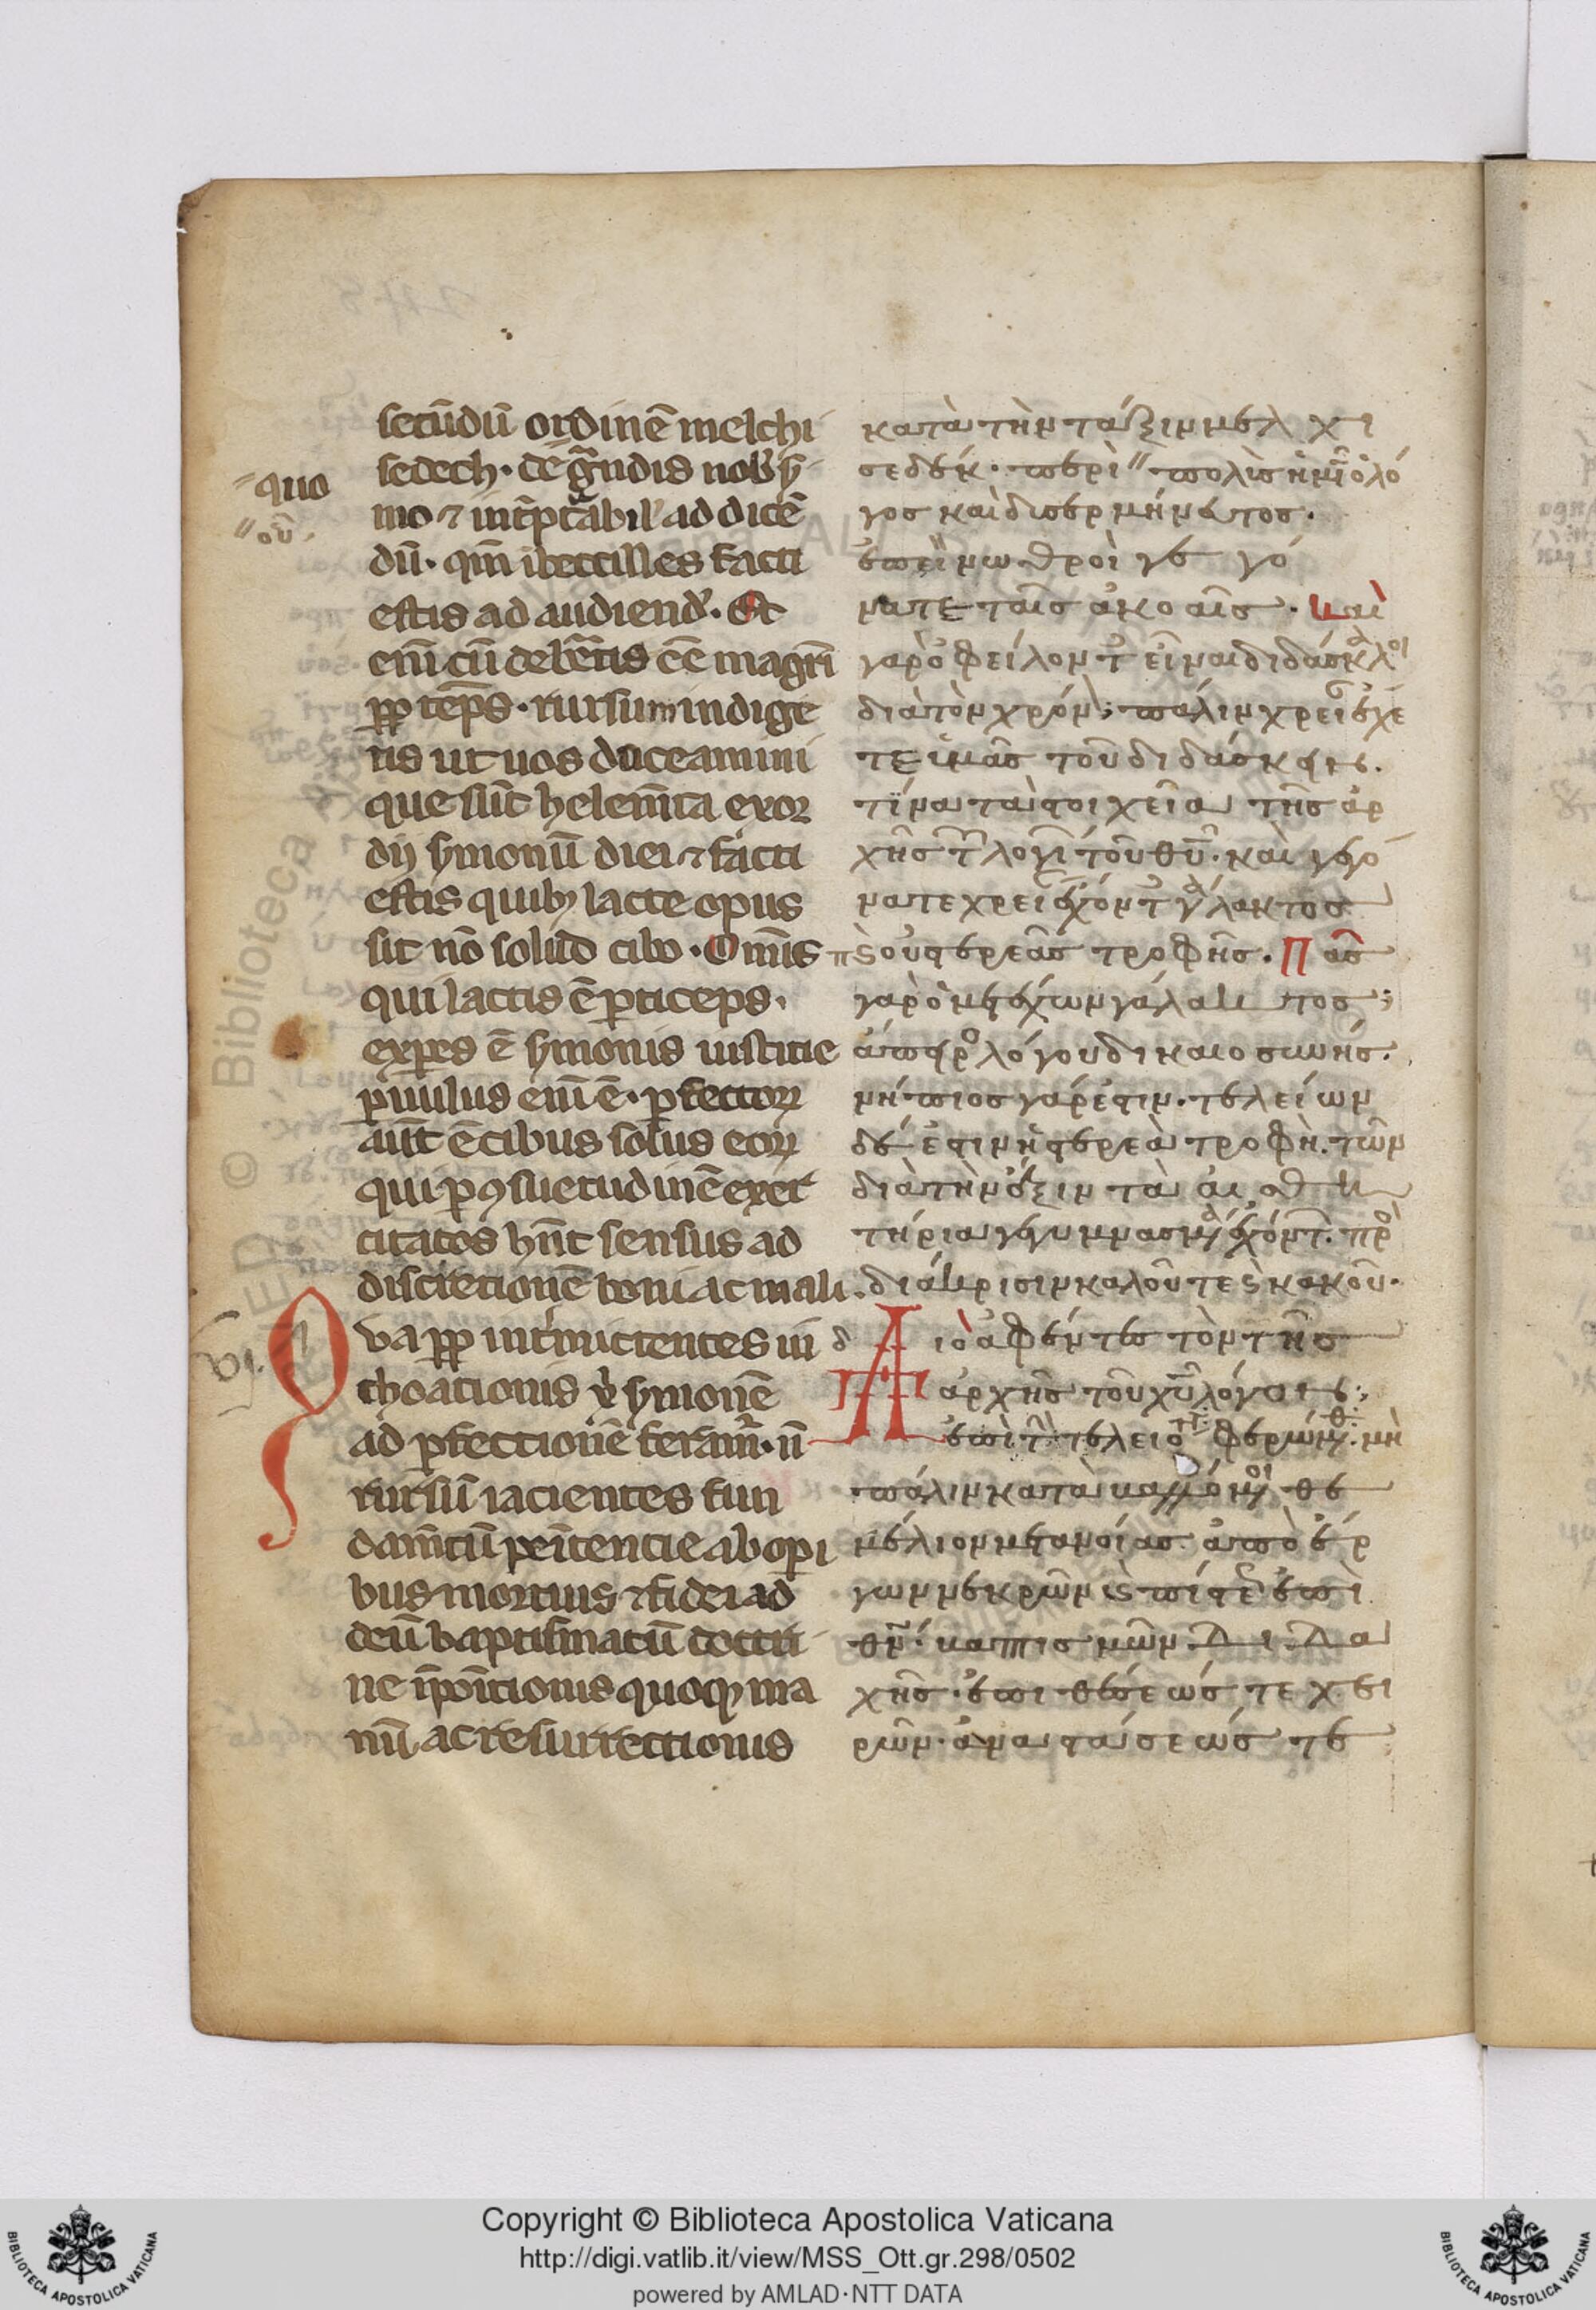 secūdū ordinē melchi
sedech · de g̃ndis nob̾ ẏ
quo
mo ⁊ int̃p̃tabil' ad dicē
oὗ
dū · qm̃ ibecilles facti
estis ad audiend̾. Et
eni͂ cū deb̃etis ēē magr̃i
ꝓp tēp̃s · rursum indige
tis ut uos duceamini
que sūt helem̃ta exor
dij ẏmonū diei ⁊ facti
estis quibꝫ lacte opus
sit nō solido cibo · Om̃is
qui lactis ē ꝑticeps ·
exꝑs ē ẏmonis iustitie
ꝑuulus eni͂ ē · ꝑfectoꝝ
aūt ē cibus solus eoꝝ
qui ꝑ ꝯsuetudinē exer
citatos hn̄t sensus ad
discretionē boni ac mali .
vi
Qva ꝓp int̾mictentes in
choationis xp̄i ẏmonē
ad ꝑfectionē feram̾ · n̄
rursū iacientes fun
dam̃tū peñtencie ab opi
bus mortuis ⁊ fidei ad
deū baptismatū doctri
ne īpoĩtionis quoqꝫ ma
nū ac resurrectionis
κατὰ τὴν τάξιν μελ χι
σεδέκ · περὶ " πολὺς ἡμῖ ὁ λό
γος καὶ δυσερμήνευτος ·
ἐπεὶ νωθροὶ γε γό
νατε ταῖς ἀκοαῖς · Καὶ
γὰρ ὀφείλοντ εἶναι διδάσκαλοι
διὰ τὸν χρόν, πάλιν χρείαν ἔχε
τε ὑμᾶς τοῦ διδάσκειν .
τίνα τὰ ϛοιχεῖα τῆς ἀρ
χῆς τῶ λογί τοῦ θῦ · καὶ γεγό
νατε χρείαν ἔχοντ γάλακτος
ϗ οὐ ϛερεᾶς τροφῆς . Πᾶς
γὰρ ὁ μετέχων γάλακ τος ·
ἄπειρο λόγου δικαιοσύνης .
νήπιος γάρ ἐϛιν · τελείων
δέ ἐϛιν ἡ ϛερεὰ τροφὴ . τῶν
διὰ τὴν ἕξιν τὰ αἰσθη
τήρια γεγυμνασμένα ἐχόντ . πρὸ
διάκρισιν καλοῦ τε ϗ κακοῦ .
δ Διὸ ἀφέντες τὸν τῆς
ἀρχῆς τοῦ χῦ λόγον
ἐπὶ τὴ τελειότητ φερώμεθ · μὴ
πάλιν καταβαλλόμενοι θε
μέλιον μετανοίας ἀπὸ ἔρ
γων νεκρῶν ϗ πίϛε ἐπὶ
θν̄ · βαπτισμῶν Δι Δα
χῆς · ἐπι θέσεώς τε χει
ρῶν · ἀναϛάσεώς τε
Copyright © Biblioteca Apostolica Vaticana
http://digi.vatlib.it/view/MSS_Ott.gr.298/0502
powered by AMLAD·NTT DATA